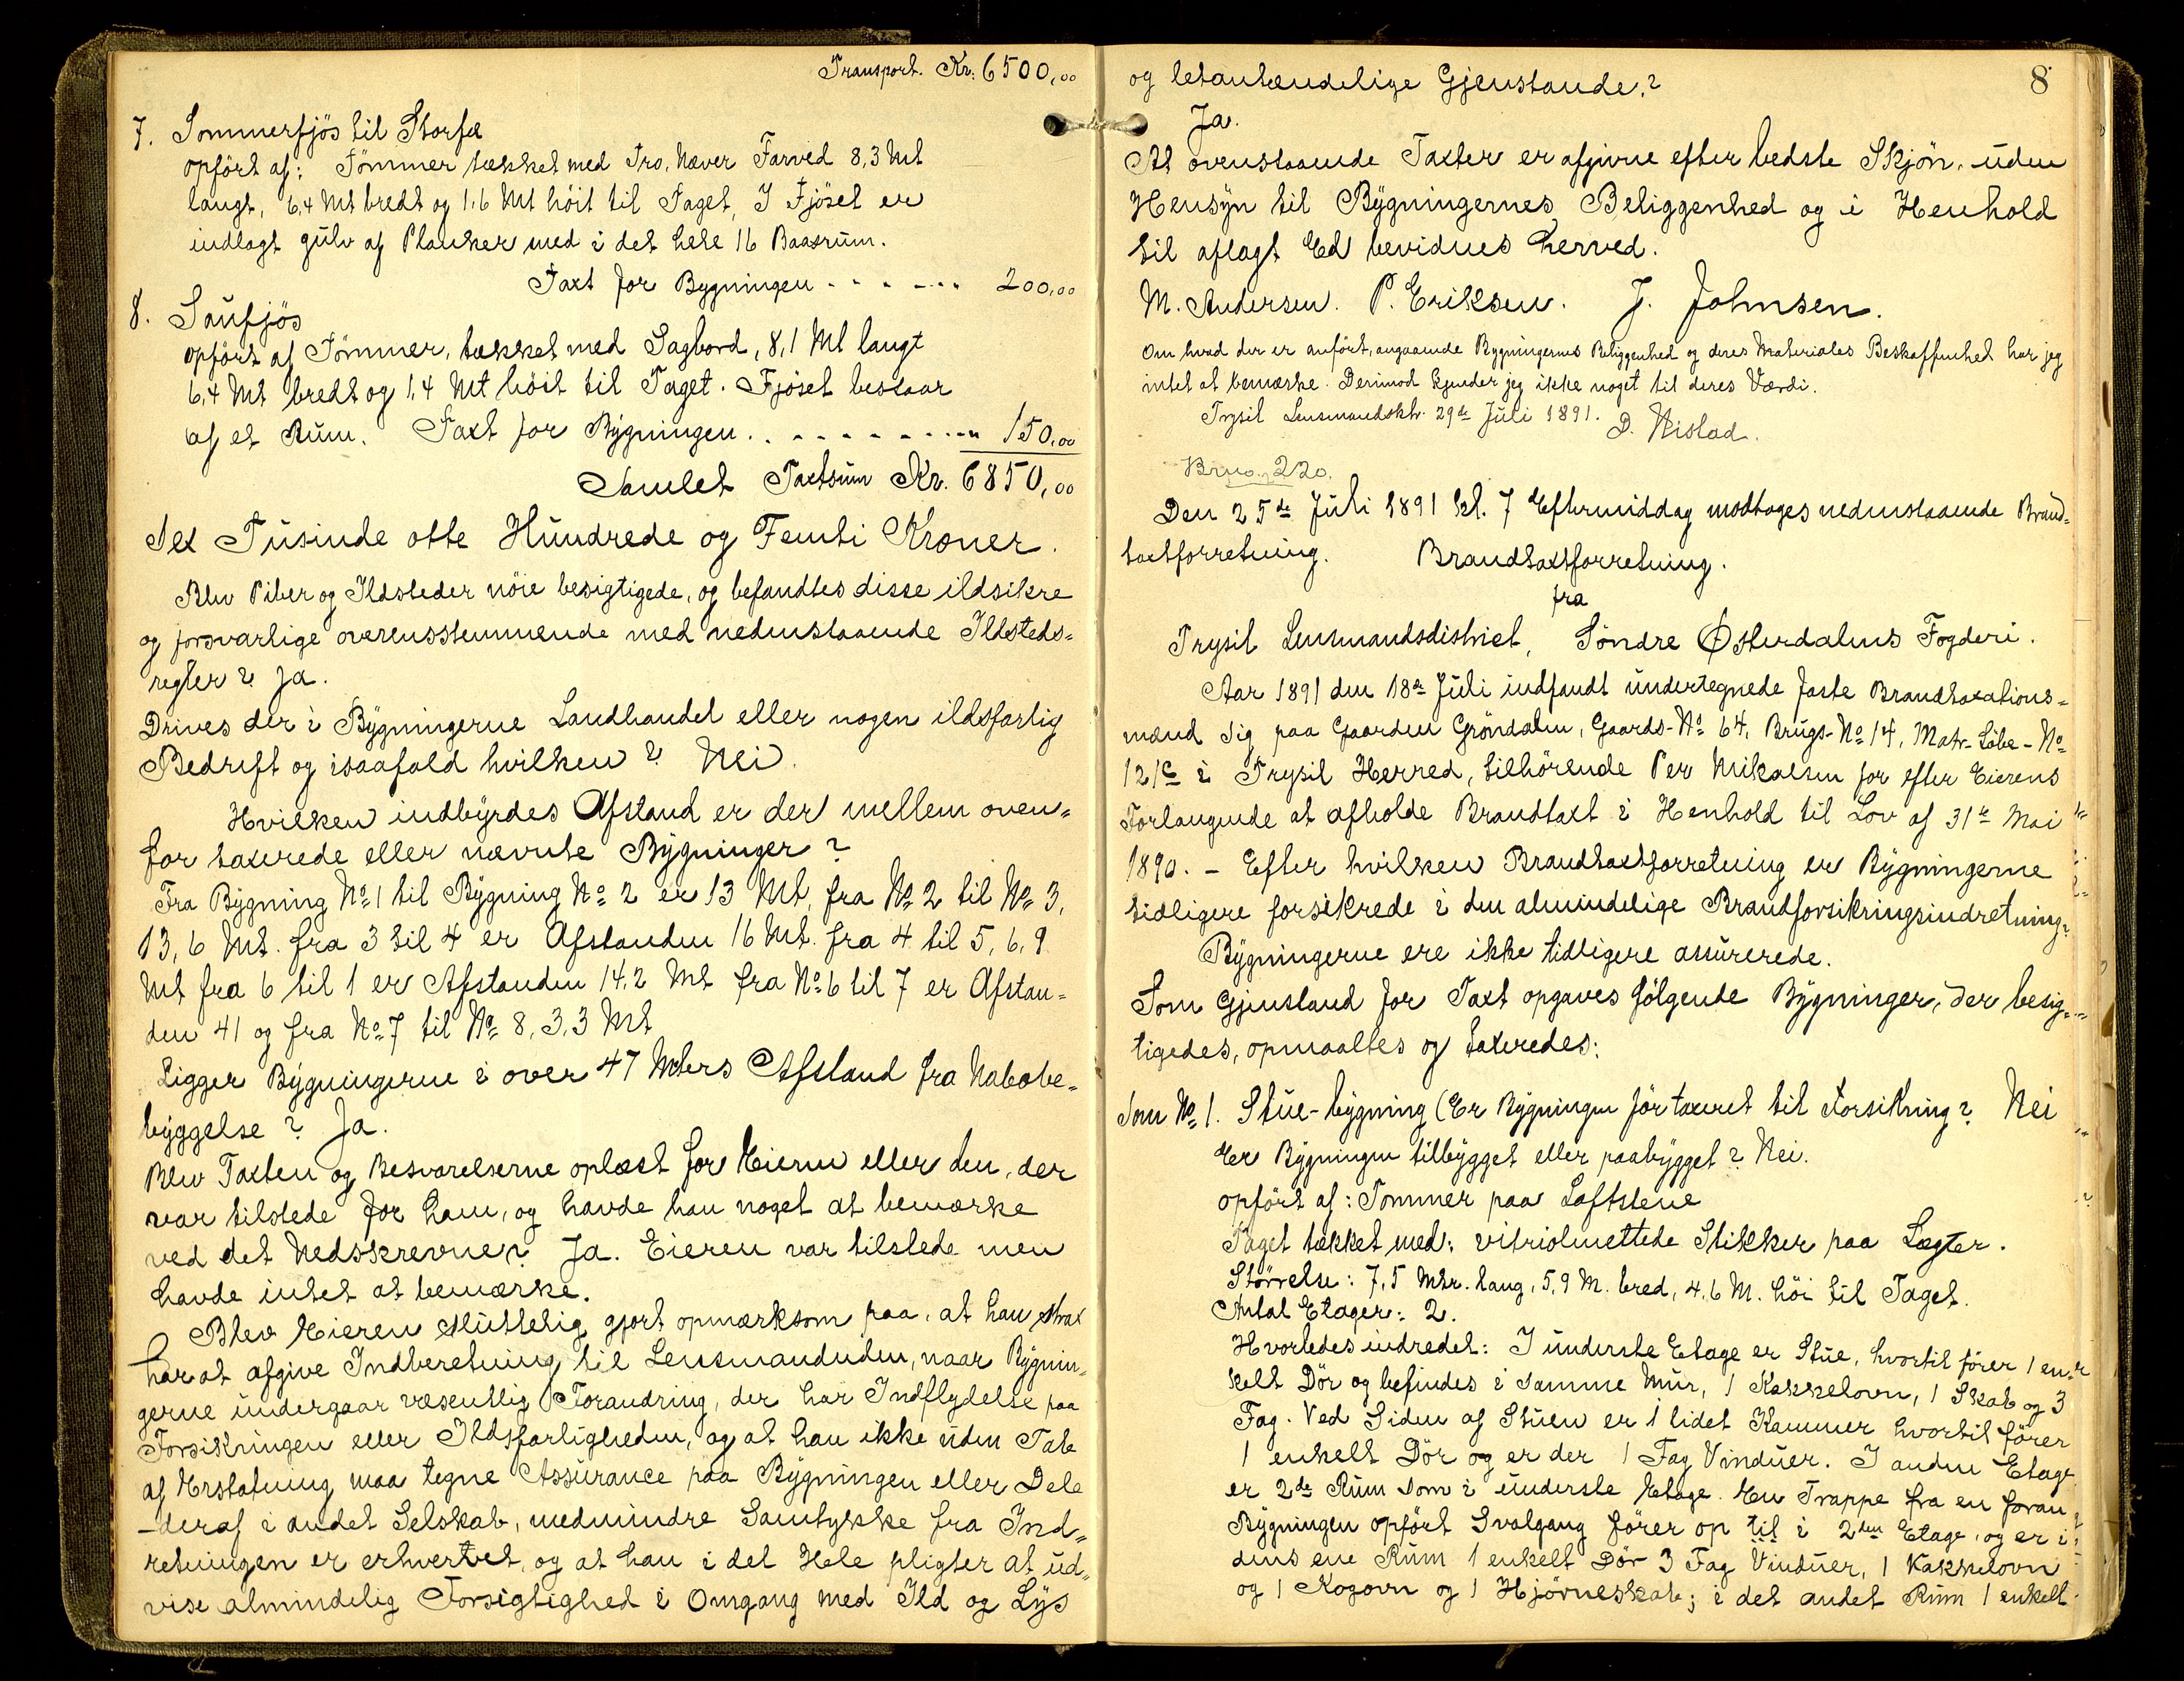 Transport. Kr: 6500,00
7. Sommerfjös til Storfæ
opfört af: Tömmer tækket med Tro, Næver Farved 8,3 Mt
langt, 6,4 Mt bredt og 1,6 Mt höit til Taget, I Fjöset er
indlagt gulv af Planker med i det hele 16 Baasrum.
Taxt for Bygningen - - - - - - - 200,00
8. Saufjös
opfört af Tömmer, tækket med Sagbord, 8,1 Mt langt
6,4 Mt bredt og 1,4 Mt höit til Taget. Fjöset bestaar
af et Rum. Taxt for Bygningen - - - - - - - - 150,00
Samlet Taxtsum Kr. 6850,00
Sex Tusinde otte Hundrede og Femti Kroner.
Blev Piber og Ildsteder nöie besigtigede, og befandtes disse ildsikre
og forsvarlige overensstemmende med nedenstaaende Ildsteds-
regler? Ja.
Drives der i Bygningerne Landhandel eller nogen ildsfarlig
Bedrift og isaafald hvilken? Nei.
Hvilken indbyrdes Afstand er der mellem oven-
for taxerede eller nævnte Bygninger?
Fra Bygning No 1 til Bygning No 2 er 13 Mt, fra No 2 til No 3,
13,6 Mt. fra 3 til 4 er Afstanden 16 Mt. fra 4 til 5, 6,9
Mt fra 6 til 1 er Afstanden 14,2 Mt fra No 6 til 7 er Afstan-
den 41 og fra No 7 til No 8, 3,3 Mt
Ligger Bygningerne i over 47 Meters Afstand fra Nabobe-
byggelse? Ja.
Blev Taxten og Besvarelserne oplæst for Eieren eller den, der
var tilstede for ham, og havde han noget at bemærke
ved det Nedskrevne? Ja. Eieren var tilstede men
havde intet at bemærke.
Blev Eieren sluttelig gjort opmærksom paa, at han strax
har at afgive Indberetning til Lensmanden, naar Bygnin-
gerne undergaar væsentlig Forandring, der har Indflydelse paa
Forsikringen eller Ildsfarligheden, og at han ikke uden Tab
af Erstatning maa tegne Assurance paa Bygningen eller Dele
deraf i andet Selskab, medmindre Samtykke fra Ind-
retningen er erhvervet, og at han i det Hele pligter at ud-
vise almindelig Forsigtighed i Omgang med Ild og Lys
8
og letantændelige Gjenstande?
Ja.
At ovenstaaende Taxter er afgivne efter bedste Skjön, uden
Hensyn til Bygningernes Beliggenhed og i Henhold
til aflagt Ed bevidnes herved.
M. Andersen. P. Eriksen. J. Johnsen.
Om hvad der er anfört, angaaende Bygningernes Beliggenhed og deres Materiales Beskaffenhed har jeg
intet at bemærke. Derimod kjender jeg ikke noget til deres Værdi.
Trysil Lensmandsktr. 29de Juli 1891. D. Nistad.
Brno. 220.
Den 25de Juli 1891 kl. 7 Eftermiddag modtoges nedenstaaende Brand-
taxtforretning. Brandtaxtforretning.
fra
Trysil Lensmandsdistrict, Söndre Østerdalens Fogderi.
Aar 1891 den 18de Juli indfandt undertegnede faste Brandtaxations-
mænd sig paa Gaarden Gröndalen, Gaards-No 64, Brugs-No 14, Matr-Löbe-No
121c i Trysil Herred, tilhörende Per Mikalsen for efter Eierens
Forlangende at afholde Brandtaxt i Henhold til Lov af 31te Mai
1890. - Efter hvilken Brandtaxtforretning er Bygningerne
tidligere forsikrede i den almindelige Brandforsikringsindretning?
Bygningerne ere ikke tidligere assurerede.
Som Gjenstand for Taxt opgaves fölgende Bygninger, der besig-
tigedes, opmaaltes og taxeredes:
Som No 1. Stue-bygning (Er Bygningen för taxeret til Forsikring? Nei
Er Bygningen tilbygget eller paabygget? Nei.
opfört af: Tömmer paa Loftstene
Taget tækket med: vitriolmettede Stikker paa Lægter.
Störrelse: 7,5 Mtr. lang, 5,9 M. bred, 4,6 M. höi til Taget.
Antal Etager: 2.
Hvorledes indredet: I underste Etage er Stue, hvortil förer 1 en-
kelt Dör og befindes i samme Mur, 1 Kakkelovn, 1 Skab og 3
Fag. Ved Siden af Stuen er 1 lidet Kammer hvortil förer
1 enkelt Dör og er der 1 Fag Vinduer. I anden Etage
er 2de Rum som i underste Etage. En Trappe fra en foran
Bygningen opfört Svalgang förer op til i 2den Etage, og er i
dens ene Rum 1 enkelt Dör 3 Fag Vinduer, 1 Kakkelovn
og 1 Kogovn og 1 Hjörneskab; i det andet Rum 1 enkelt